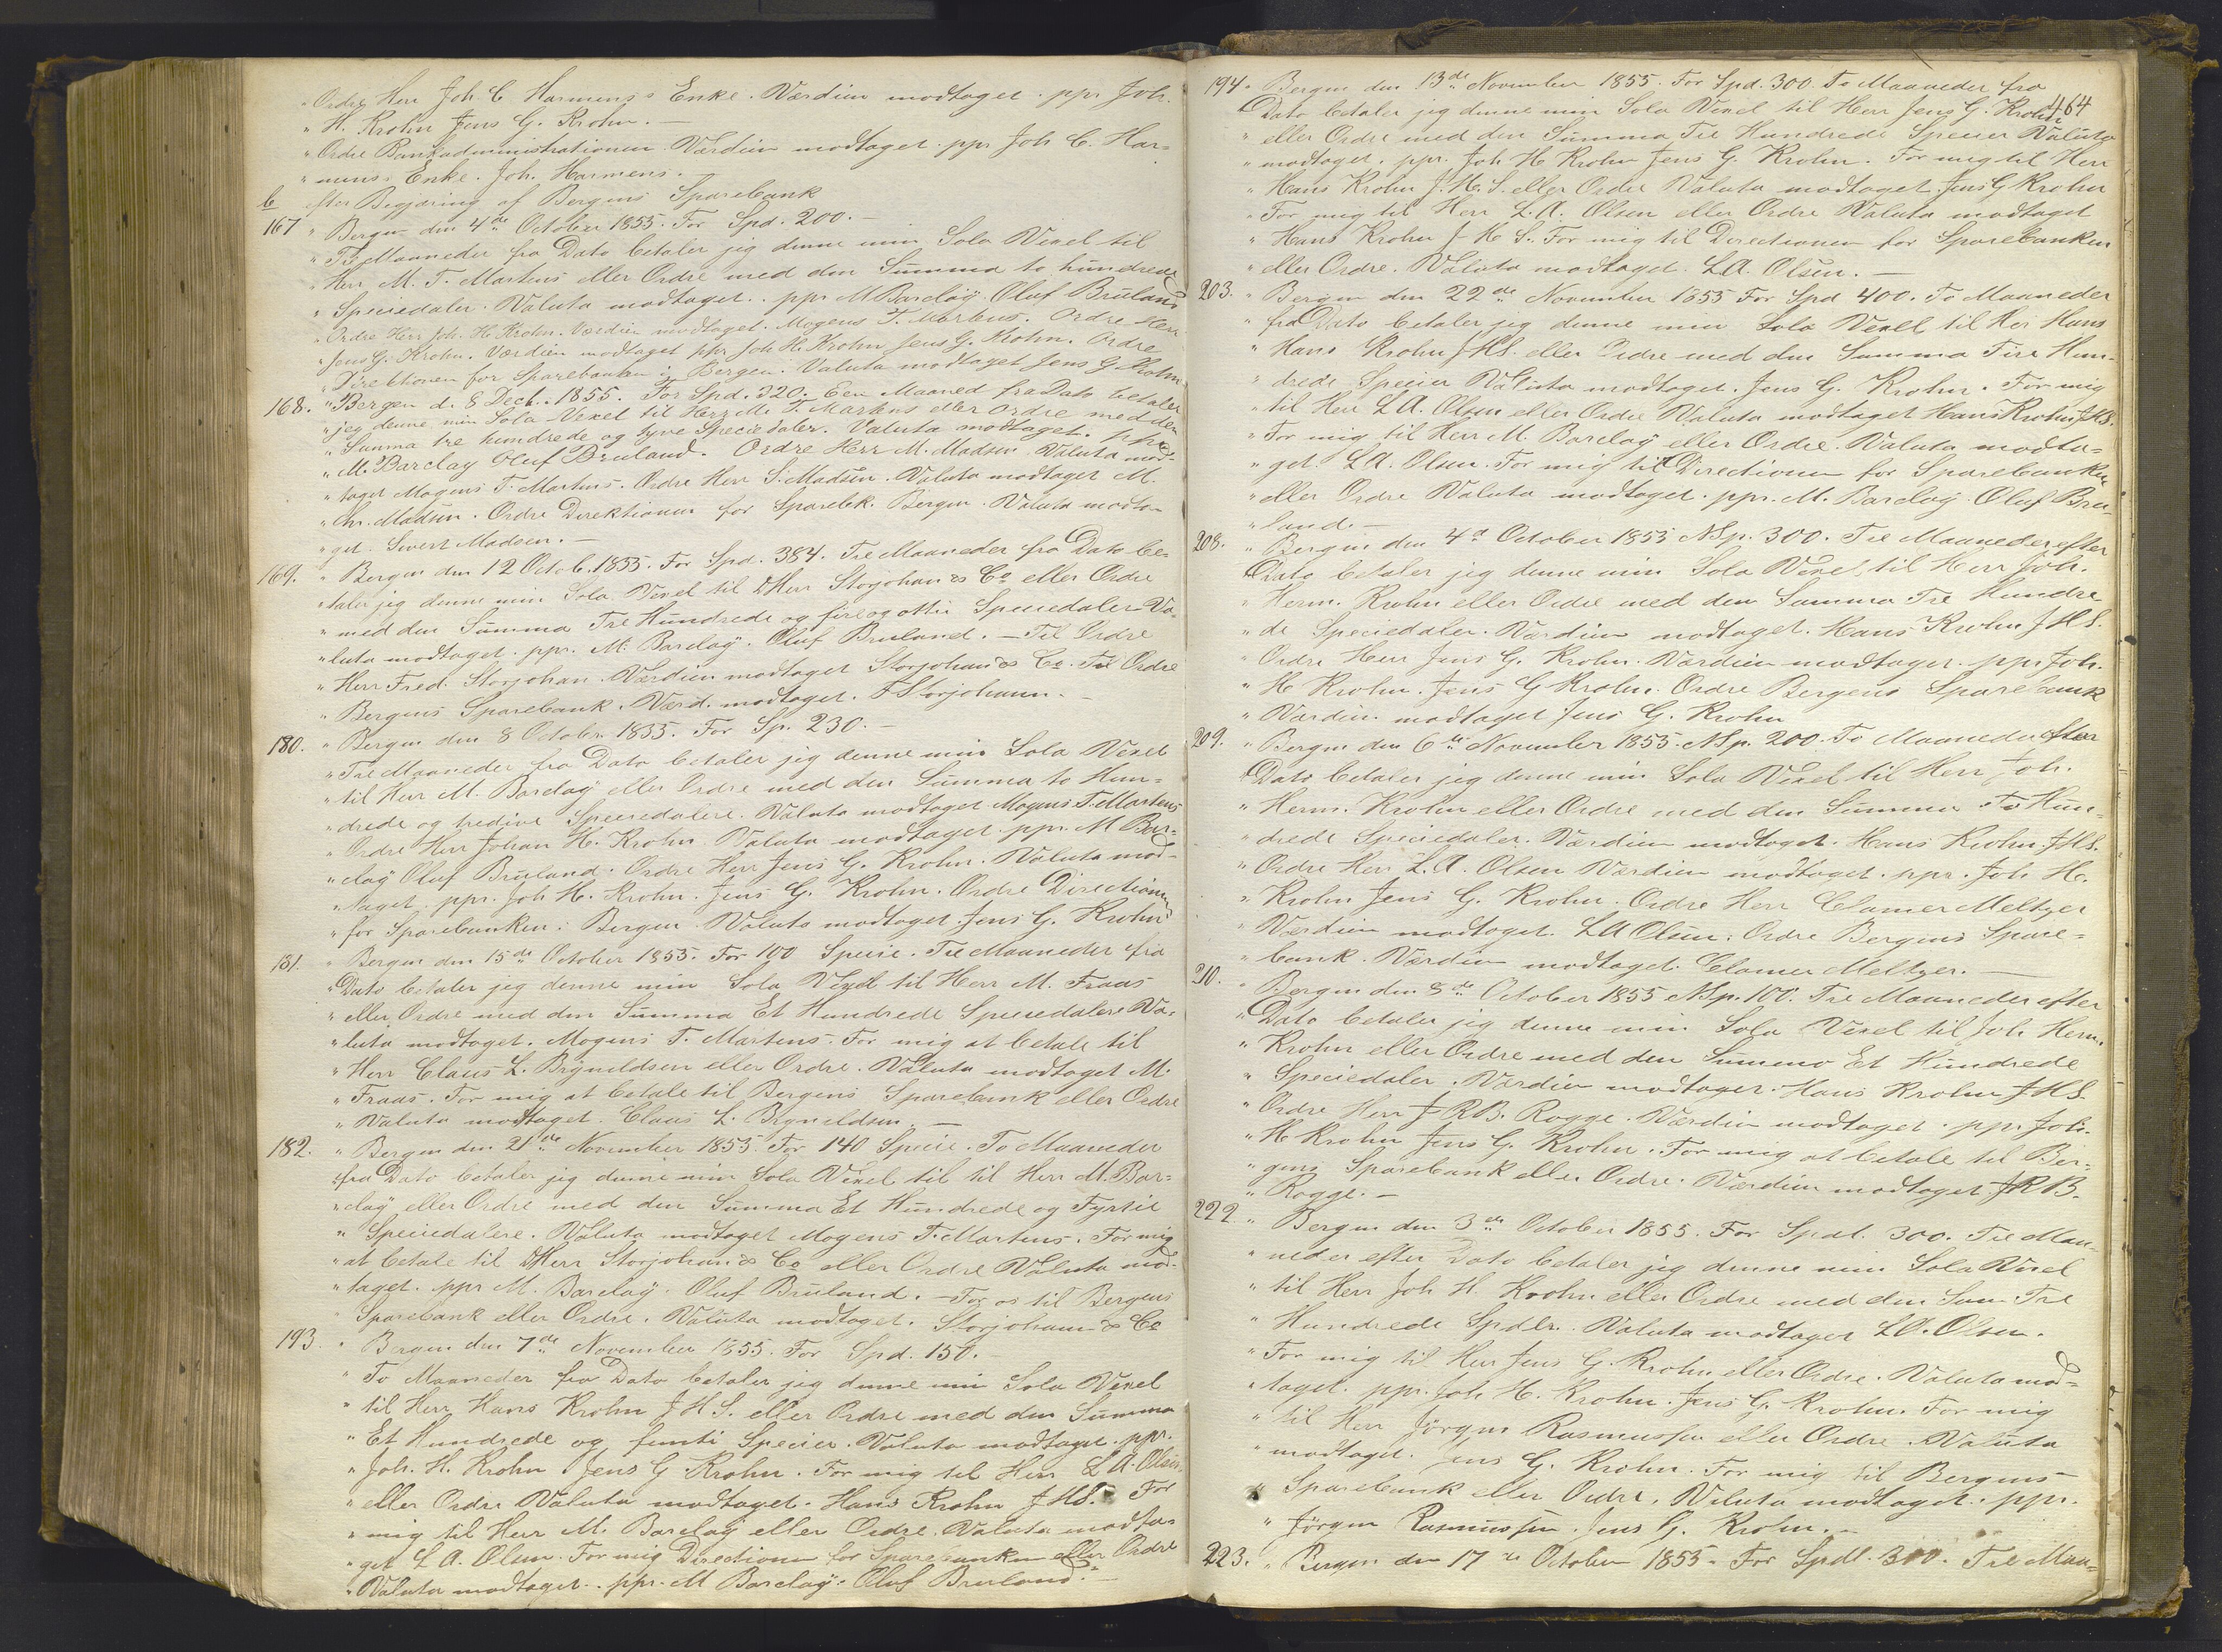 " Ordre Herr Joh. C Harmens's Enke. Værdien modtaget. ppr Joh.
" H. Krohn Jens G. Krohn. —
" Ordre Bankadministrationen. Værdien modtaget. ppr Joh C. Har=
" mens's Enke. Joh. Harmens. —
b efter Begjæring af Bergens Sparebank
167 " Bergen den 4de October 1855. For Spd. 200. —
" To Maaneder fra Dato betaler jeg denne min Sola Vexel til
" Herr M. T. Martens eller Ordre med den Summa to hundrede
" Speciedaler. Valuta modtaget. ppr M Barclay Oluf Bruland
" Ordre Herr Joh. H. Krohn. Værdien modtaget. Mogens T. Martens. Ordre Herr
" Jens G. Krohn. Værdien modtaget ppr Joh H. Krohn Jens G. Krohn. Ordre
" Direktionen for Sparebanken i Bergen. Valuta modtaget Jens G. Krohn
168. " Bergen d. 8 Dect. 1855. For Spd. 320. Een Maaned fra Dato betaler
" jeg denne min Sola Vexel til Herr M. T. Martens eller ordre med den
" Summa tre hundrede og tyve Speciedaler. Valuta modtaget. ppr
" M. Barclay Oluf Bruland. Ordre Herr M. Madsen. Valuta mod-
" taget Mogens T. Martens. Ordre Herr S. Madsen. Valuta modtaget M.
" Chr. Madsen. Ordre Direktionen for Sparebk. Bergen. Valuta modta-
" get. Sivert Madsen. —
169. " Bergen den 12 Octob. 1855. For Spd. 384. Tre Maaneder fra Dato be-
" taler jeg denne min Sola Vexel til DHerr Storjohan & Co eller Ordre
" med den Summa Tre Hundrede og fire og ottie Speciedaler Va-
" luta modtaget. ppr. M. Barclay. Oluf Bruland. — Til Ordre
" Herr Fred. Storjohan. Værdien modtaget Storjohan & Co. Til Ordre
" Bergens Sparebank. Værd. modtaget. F Storjohann. —
180. " Bergen den 8 Octobr. 1855. For Sp. 230. —
" Tre Maaneder fra Dato betaler jeg denne min Sola Vexel
" til Herr M. Barclay eller Ordre med den Summa to Hun=
" drede og tredive Speciedalere. Valuta modtaget Mogens T. Martens
" Ordre Herr Johan H. Krohn. Valuta modtaget. ppr. M Bar=
" clay Oluf Bruland. Ordre Herr Jens G. Krohn. Valuta mod-
" taget. ppr. Joh H. Krohn. Jens G. Krohn. Ordre Directionen
" for Sparebanken i Bergen. Valuta modtaget. Jens G. Krohn
181. " Bergen den 15de October 1855. For 100 Specie. Tre Maaneder fra
" Dato betaler jeg denne min Sola Vexel til Herr M. Fraas
" eller Ordre med den Summa Et Hundrede Speciedalere. Va-
" luta modtaget. Mogens T. Martens. For mig at betale til
" Herr Claus L. Brynildsen eller Ordre. Valuta modtaget M.
" Fraas. For mig at betale til Bergens Sparebank eller Ordre
" Valuta modtaget. Claus L. Brynildsen. —
182. " Bergen den 21de November 1855. For 140 Specie. To Maaneder
" fra Dato betaler jeg denne min Sola Vexel til til Herr M. Bar=
" clay eller Ordre med den Summa Et Hundrede og Fyrtie
" Speciedalere. Valuta modtaget Mogens T. Martens. For mig
" at betale til DHerr Storjohan & Co eller Ordre Valuta mod-
" taget. ppr M. Barclay. Oluf Bruland. — For os til Bergens
" Sparebank eller Ordre. Valuta modtaget. Storjohann & Co
193. " Bergen den 7de November 1855. For Spd. 150. —
" To Maaneder fra Dato betaler jeg denne min Sola Vexel
" til Herr Hans Krohn J H S. eller Ordre med den Summa
" Et Hundrede og femti Specier. Valuta modtaget. ppr.
" Joh. H. Krohn Jens G Krohn. For mig til Herr L A. Olsen
" eller Ordre Valuta modtaget. Hans Krohn J HS. For
" mig til Herr M. Barclay eller Ordre. Valuta modta=
" get. L A. Olsen. For mig Directionen for Sparebanken eller Ordre
" Valuta modtaget. ppr. M Barclay. Oluf Bruland. —
464
194. " Bergen den 13de November 1855. For Spd. 300. To Maaneder fra
" Dato betaler jeg denne min Sola Vexel til Herr Jens G. Krohn
" eller Ordre med den Summa Tre Hundrede Specier Valuta
" modtaget. ppr. Joh H Krohn Jens G. Krohn. For mig til Herr
" Hans Krohn J. H. S. eller Ordre Valuta modtaget Jens G Krohn
" For mig til Herr L. A. Olsen eller Ordre Valuta modtaget
" Hans Krohn J H S. For mig til Directionen for Sparebanken
" eller Ordre. Valuta modtaget. L A. Olsen. —
203. " Bergen den 22de November 1855 For Spd 400. To Maaneder
" fra Dato betaler jeg denne min Sola Vexel til Herr Hans
" Hans Krohn J HS. eller Ordre med den Summa Fire Hun-
" drede Specier Valuta modtaget. Jens G. Krohn. For mig
" til Herr L A. Olsen eller Ordre Valuta modtaget Hans Krohn J HS.
" For mig til Herr M. Barclay eller Ordre. Valuta modta-
" get. L A. Olsen. For mig til Directionen for Sparebanken
" eller Ordre Valuta modtaget. ppr. M. Barclay. Oluf Bru-
" land. —
208. " Bergen den 4d October 1855 NSp. 300. Tre Maaneder efter
" Dato betaler jeg denne min Sola Vexel, til Herr Joh.
" Herm. Krohn eller Ordre med den Summa Tre Hundre
" de Speciedaler. Værdien modtaget. Hans Krohn J H S.
" Ordre Herr Jens G. Krohn. Værdien modtaget. ppr Joh.
" H Krohn. Jens G Krohn. Ordre Bergens Sparebank
" Værdien modtaget Jens G. Krohn
209. " Bergen den 6te November 1855. NSp. 200. To Maaneder efter
" Dato betaler jeg denne min Sola Vexel til Herr Joh.
" Herm. Krohn eller Ordre med den Summa To Hun-
" drede Speciedaler. Værdien modtaget. Hans Krohn J HS.
" Ordre Herr L. A. Olsen Værdien modtaget. ppr. Joh H.
" Krohn Jens G. Krohn. Ordre Herr Clamer Meltzer
" Værdien modtaget. L A Olsen. Ordre Bergens Spare=
" bank. Værdien modtaget. Clamer Meltzer. —
210. " Bergen den 8de October 1855 NSp. 100. Tre Maaneder efter
" Dato betaler jeg denne min Sola Vexel til Joh Herm.
" Krohn eller Ordre med den Summa Et Hundrede
" Speciedaler. Værdien modtaget. Hans Krohn J HS.
" Ordre Herr J R B. Rogge. Værdien modtaget. ppr. Joh.
" H Krohn Jens G. Krohn. For mig at betale til Ber=
" gens Sparebank eller Ordre. Værdien modtaget J R B.
" Rogge. —
222. " Bergen den 3de October 1855. For Spdl. 300. Tre Maa-
" neder efter Dato betaler jeg denne min Sola Vexel
" til Herr Joh H. Krohn eller Ordre med den Sum Tre
" Hundrede Spdlr. Valuta modtaget L A. Olsen.
" For mig til Herr Jens G. Krohn eller Ordre. Valuta mod=
" taget. ppr. Joh H. Krohn. Jens G. Krohn. For mig
" til Herr Jörgen Rasmussen eller Ordre. Valuta
" modtaget. Jens G. Krohn. For mig til Bergens
" Sparebank eller Ordre. Valuta modtaget. ppr.
" Jörgen Rasmussen. Jens G. Krohn. —
223. " Bergen den 17de October 1855. For Spdl. 300. Tre Maa=